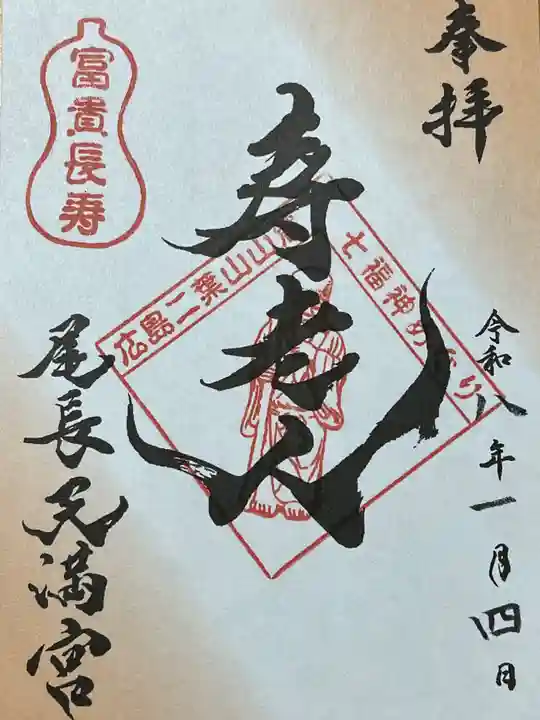 奉拝
令和八年一月四日
寿老人
広島二葉山山
七福神めぐり
富貴長寿
尾長天満宮